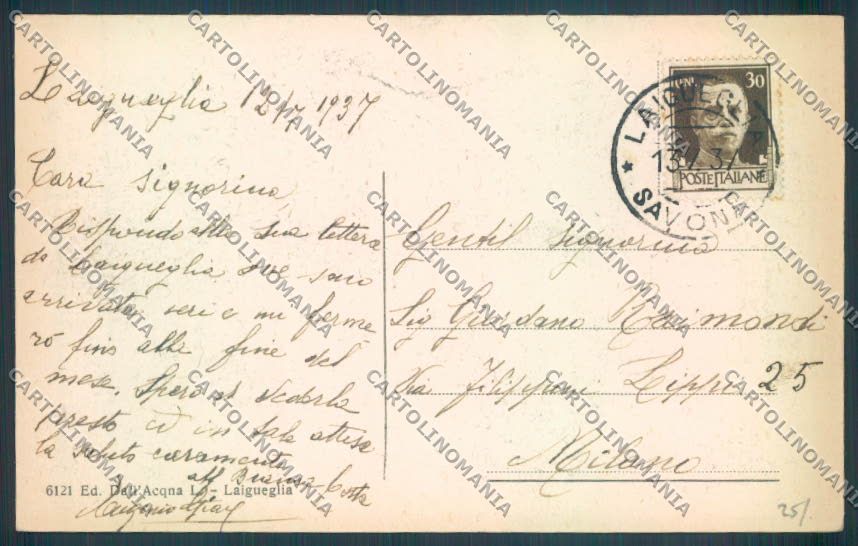 Laigueglia 12/7 1937
Cara Signorina,
Rispondo alla sua lettera
da Laigueglia ove sono
arrivata ieri e mi ferme
rò fino alla fine del
mese. Spero di vederla
presto ed in tale attesa
la saluto caramente
aff
6121 Ed. Dall'Acqna L. - Laigueglia
30
POSTE ITALIANE
LAIGUEGLIA
13 7 37
SAVONA
Gentil Signorina
Sig Giordano Raimondi
Via Filippino Lippi 25
Milano
25/
CARTOLINOMANIA